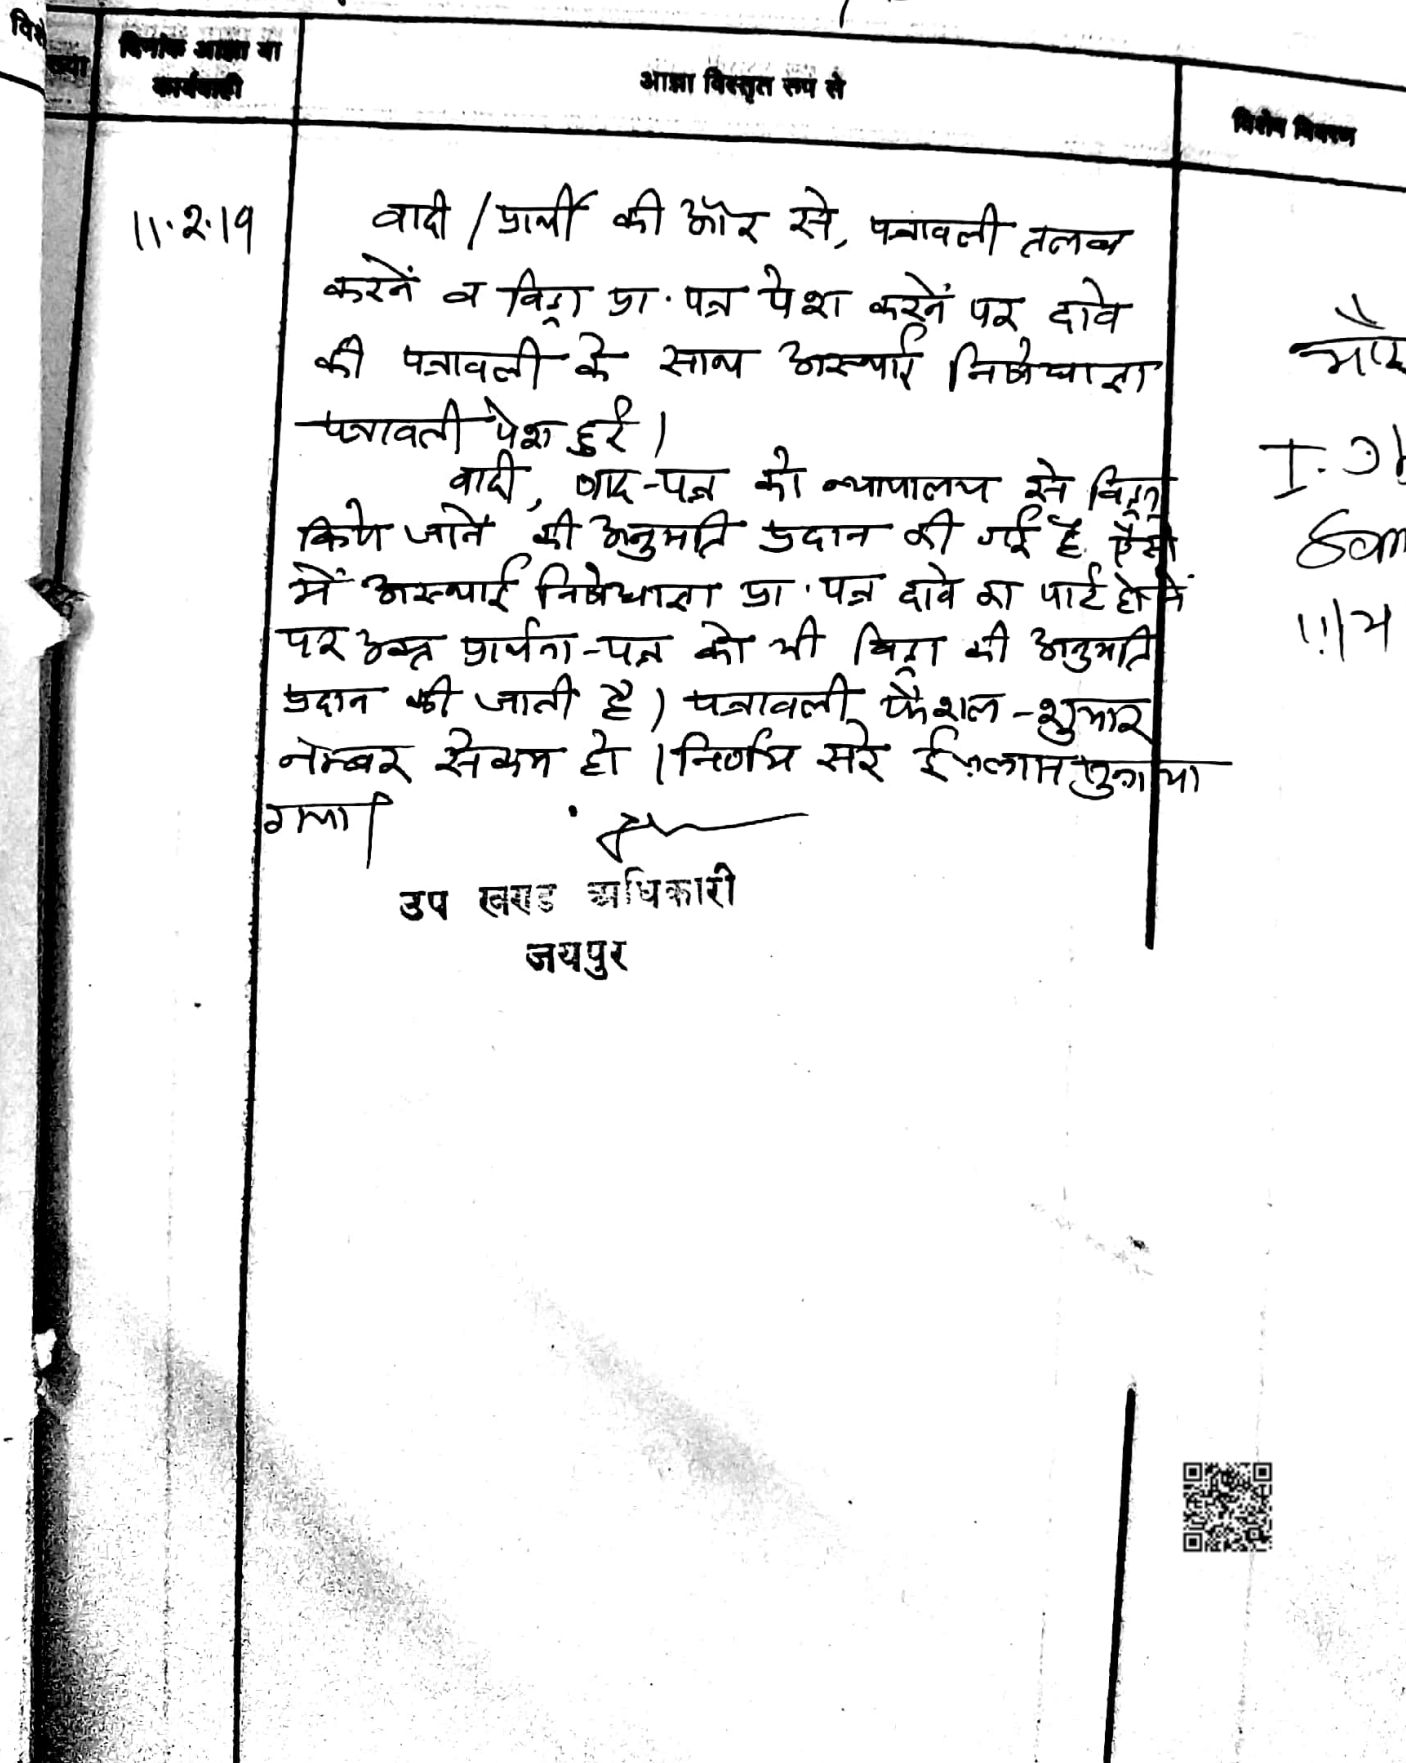 दिनांक आज्ञा या
कार्यवाही
आज्ञा विस्तृत रूप से
विशेष विवरण
11.2.19
वादी / प्रार्थी की ओर से, पत्रावली तलब
करनें व विड्रा प्रा. पत्र पेश करनें पर दावे
की पत्रावली के साथ अस्थाई निषेधाज्ञा
पत्रावली पेश हुई।
वादी, वाद-पत्र को न्यायालय से विड्रा
किये जाने की अनुमति प्रदान की गई है. ऐसी
में अस्थाई निषेधाज्ञा प्रा. पत्र दावे का पार्ट होनें
पर उक्त प्रार्थना-पत्र को भी विड्रा की अनुमति
प्रदान की जाती है। पत्रावली फैशल-शुमार
नम्बर से कम हो। निर्णय सरे ईजलास सुनाया
गया।
उप खण्ड अधिकारी
जयपुर